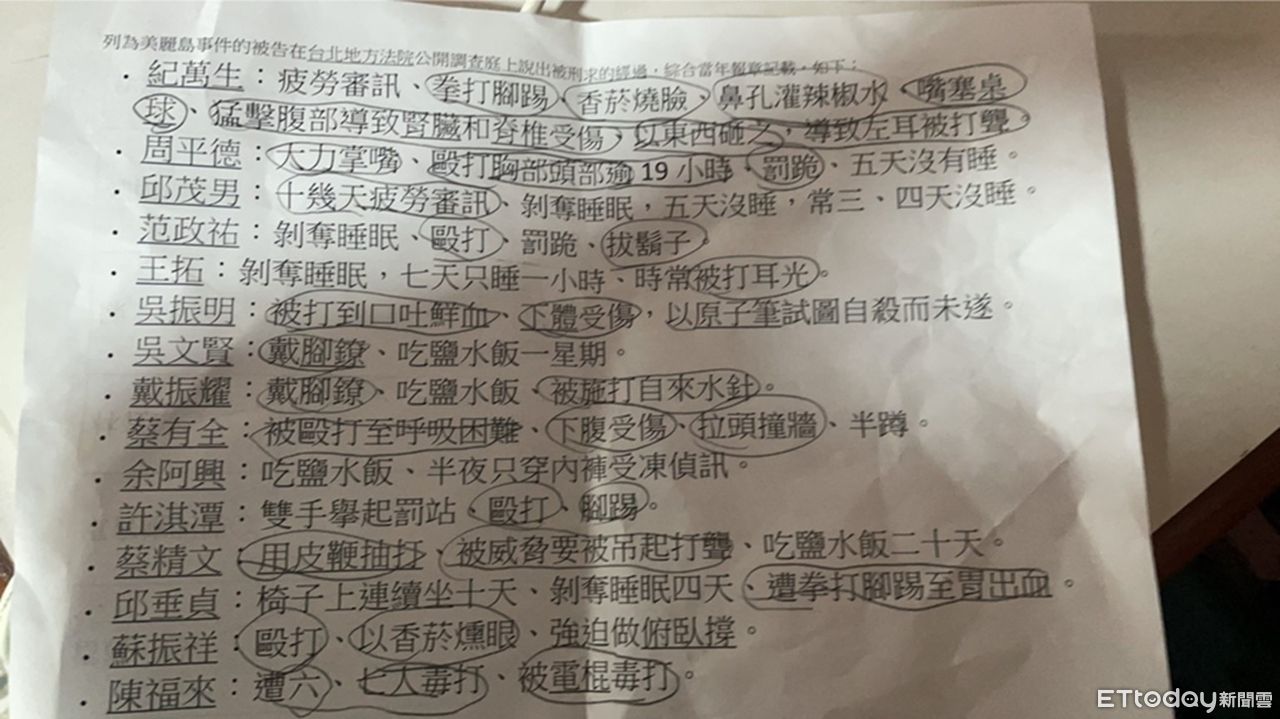 列為美麗島事件的被告在台北地方法院公開調查庭上說出被刑求的經過，綜合當年報章記載，如下：
· 紀萬生：疲勞審訊、拳打腳踢、香菸燒臉、鼻孔灌辣椒水、嘴塞桌
球、猛擊腹部導致腎臟和脊椎受傷，以東西砸之，導致左耳被打聾。
· 周平德：大力掌嘴、毆打胸部頭部逾 19 小時、罰跪、五天沒有睡。
· 邱茂男：十幾天疲勞審訊、剝奪睡眠，五天沒睡，常三、四天沒睡。
· 范政祐：剝奪睡眠、毆打、罰跪、拔鬍子。
· 王拓：剝奪睡眠，七天只睡一小時、時常被打耳光。
· 吳振明：被打到口吐鮮血、下體受傷，以原子筆試圖自殺而未遂。
· 吳文賢：戴腳鐐、吃鹽水飯一星期。
· 戴振耀：戴腳鐐、吃鹽水飯、被施打自來水針。
· 蔡有全：被毆打至呼吸困難、下腹受傷、拉頭撞牆、半蹲。
· 余阿興：吃鹽水飯、半夜只穿內褲受凍偵訊。
· 許淇潭：雙手舉起罰站、毆打、腳踢。
· 蔡精文：用皮鞭抽打、被威脅要被吊起打聾、吃鹽水飯二十天。
· 邱垂貞：椅子上連續坐十天、剝奪睡眠四天、遭拳打腳踢至胃出血。
· 蘇振祥：毆打、以香菸燻眼、強迫做俯臥撐。
· 陳福來：遭六、七人毒打、被電棍毒打。
ETtoday新聞雲